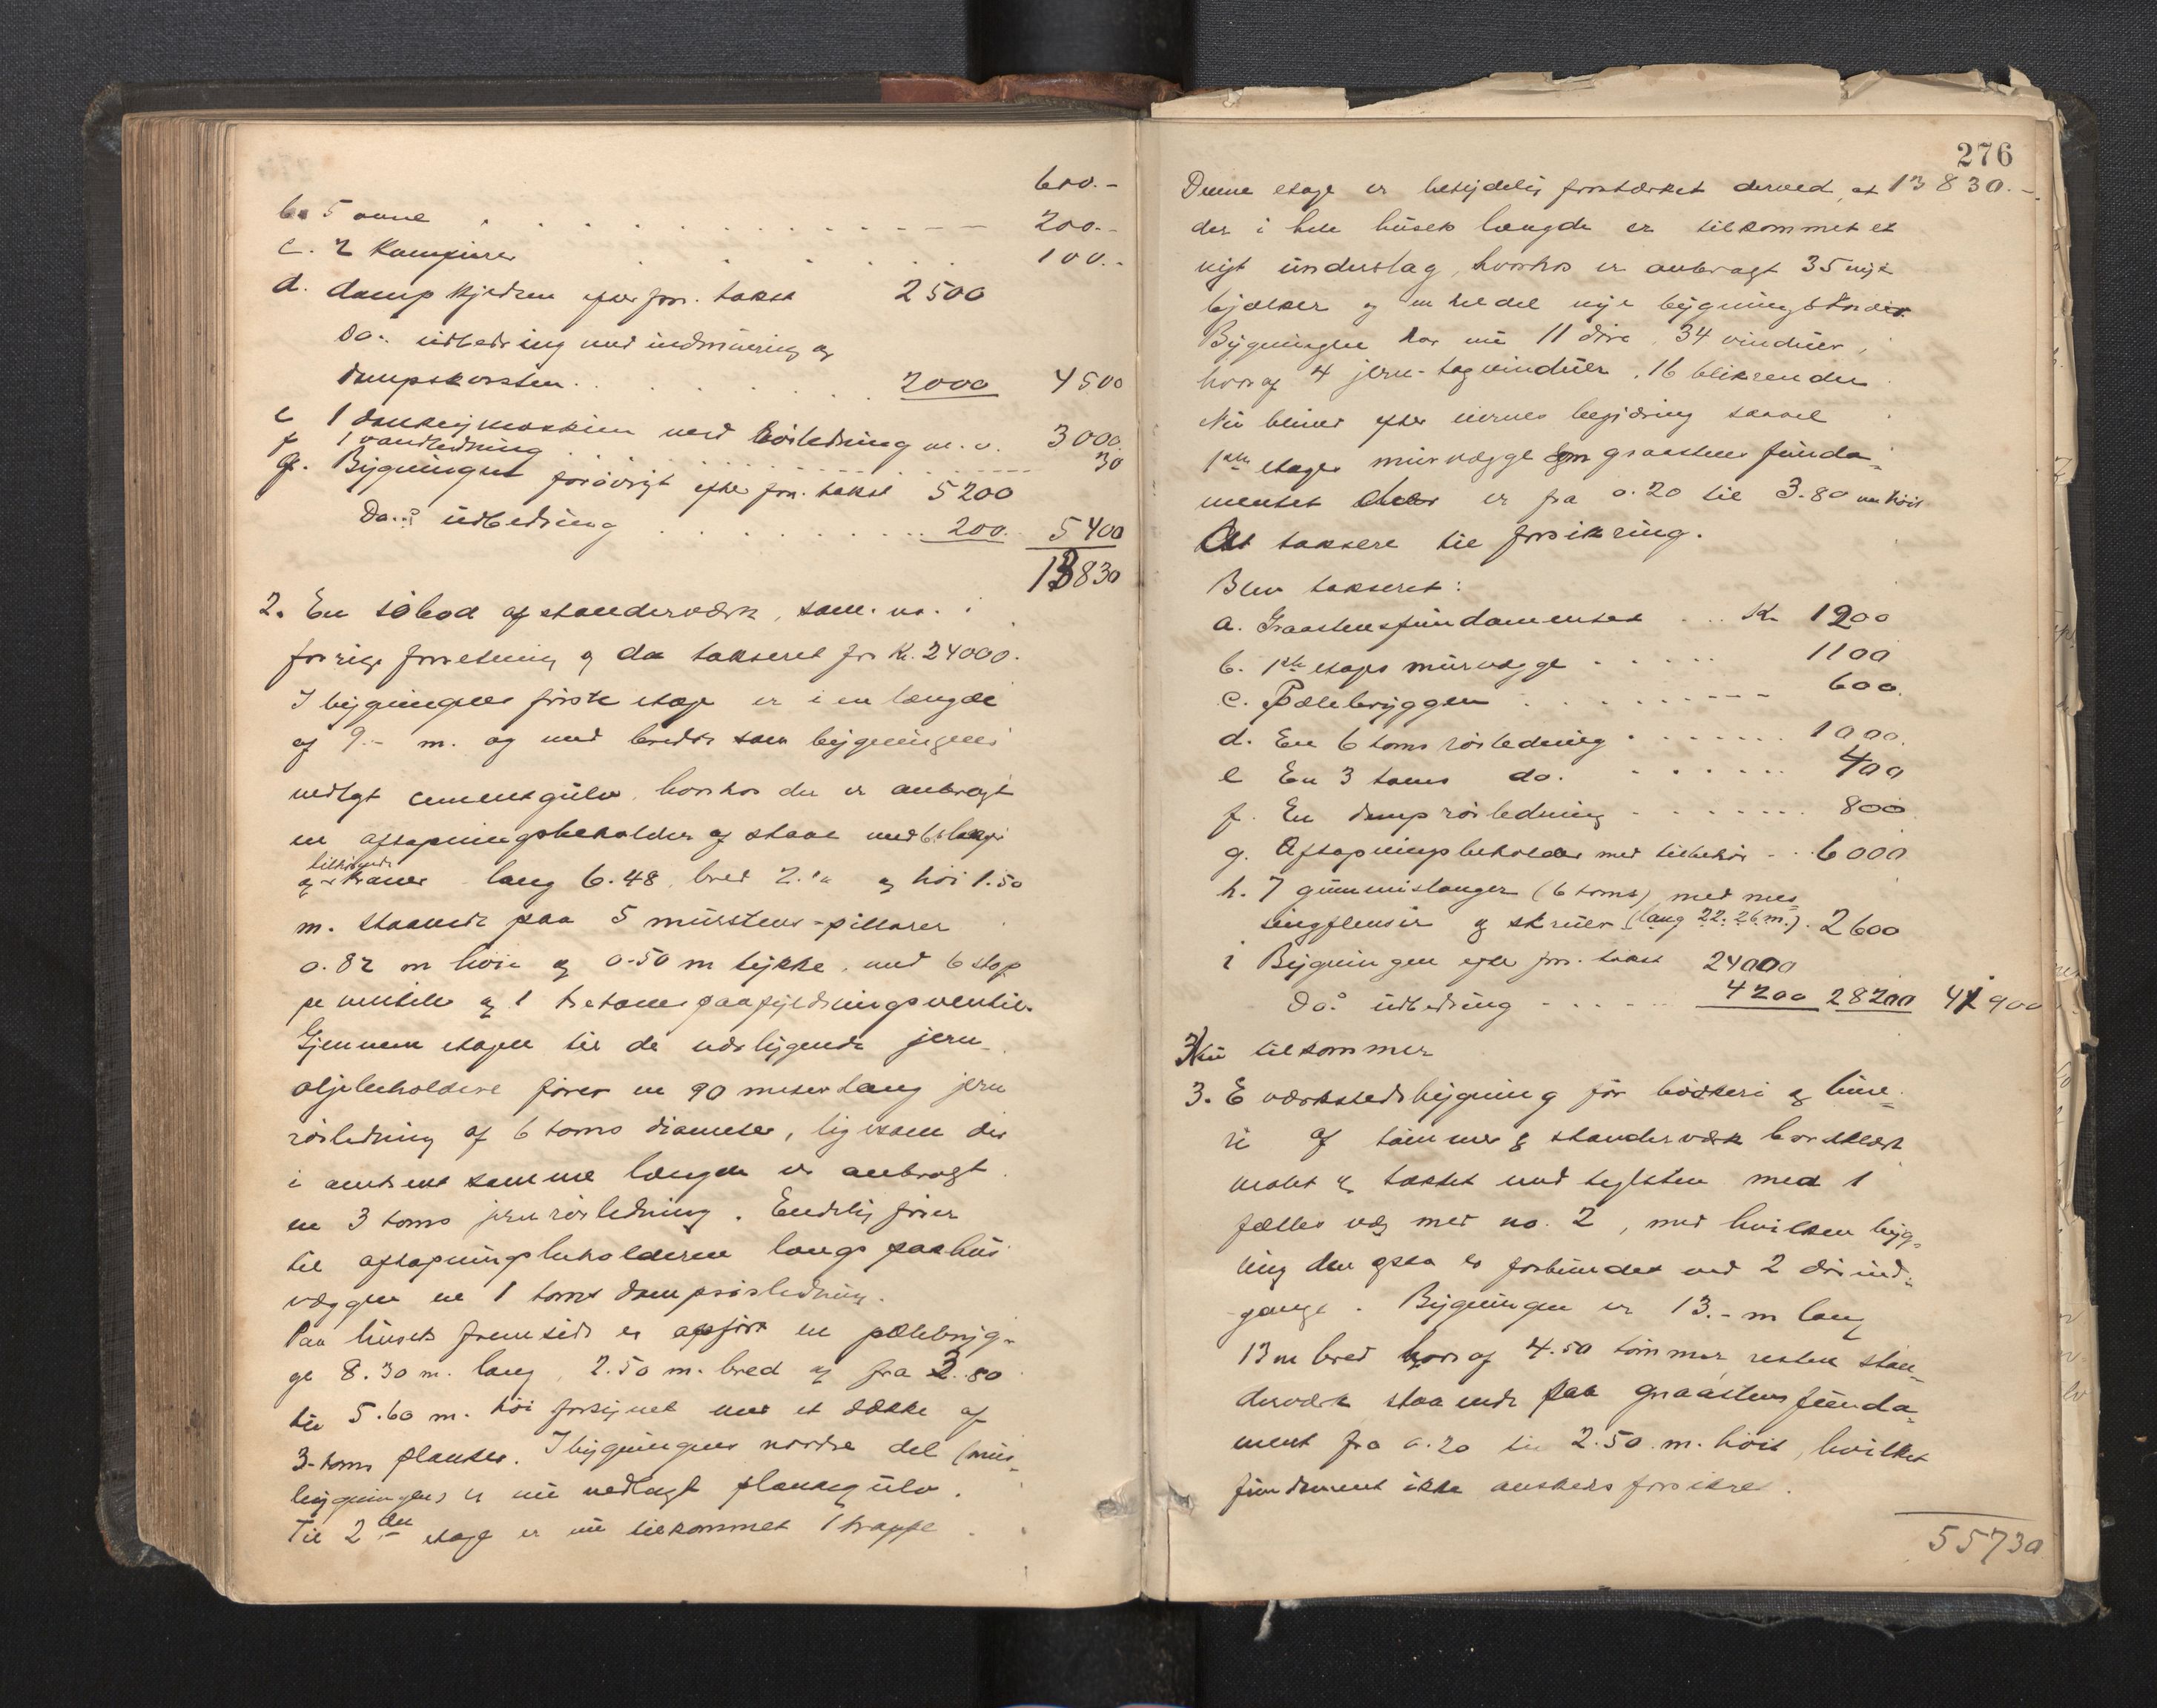 600.-
b. 5 ovne . . . . . . . 200.-
c. 2 Kampirer . . . . . 100.-
d. dampkjedsen efter forr. takst 2500
Do.. udbedring med indmuring og
dampskorsten . . . . . 2000 4500
e 1 donkeymaskin med rørledning m.v. 3000.
f 1 vandledning . . . . . 30
g. Bygningen forøvrigt efter forr. takst 5200
Do..: udbedring . . . . . 200. 5400
13830
2. En søbod af standerværk, som no. i
forrige forretning og da takseret for Kr. 24000.
I bygningens første etage er i en længde
af 9.- m. og med bredde som bygningens
nedlagt cementgulv, hvorhos der er anbragt
en aftapningsbeholder af staal med
tilhørende
og kraner lang 6.48, bred 2. og høi 1.50
m. staaende paa 5 murstens-pillarer
0.82 m høie og 0.50 m tykke, med 6 stop
pe ventiler og 1 tretoms paafyldningsventil.
Gjennem etagen til de udligende jern-
oljebeholdere fører en 90 meter lang jern
rørledning af 6 toms diameter, ligesom der
i omtrent samme længde er anbragt
en 3 toms jernrørledning. Endelig fører
til aftapningsbeholderen langs pakhus
væggen en 1 toms damprørsledning.
Paa husets fremside er opført en pælebryg-
ge 8.30 m. lang, 2.50 m. bred og fra 3.80
til 5.60 m. høi forsynet med et dække af
3-toms planker. I bygningens nordre del (mur-
bygningen) er nu nedlagt plankegulv.
Til 2den etage er nu tilkommet 1 trappe
276
Denne etage er betydelig forstærket derved, at 13830.-
der i hele husets længde er tilkommet et
nyt underslag, hvorhos er anbragt 35 nye
bjælker og en hel del nye bygningsbånder.
Bygningen har nu 11 døre, 34 vinduer,
hvoraf 4 jern-tagvinduer, 16 blikrender
Nu blives efter eierens begjæring saavel
1ste etages murvægge som graastens funda-
mentet der er fra 0.20 til 3.80 m høit
At taksere til forsikring.
Blev takseret:
a. Graastensfundamentet . . . Kr 1200
b. 1ste etages murvægge . . . . . 1100
c. Pælebryggen . . . . . . 600.
d. En 6 toms rørledning . . . . . 1000.
e En 3 toms do. . . . . . 400
f. En damprørledning . . . . . 800
g. Aftapningsbeholder med tilbehør . . 6000
h. 7 gummislanger (6 toms) med mes-
singflenser og skruer (lang 22.26 m.). 2600
i Bygningen efter forr. takst 24000
Do.: udbedring . . . . 4200 28200 41900
Nu tilkommer
3. E værkstedsbygning for bødkeri og lime-
ri af tømmer og standerværk bordklædt
malet og tækket med teglsten med 1
fælles væg med no. 2, med hvilken byg-
ning den ogsaa er forbundet med 2 dørind-
gange. Bygningen er 13.- m lang
13 m bred hvoraf 4.50 tømmer, resten stan-
derværk staaende paa graastens funda-
ment fra 0.20 til 2.50 m. høit, hvilket
fundament ikke ønskes forsikret.
55730